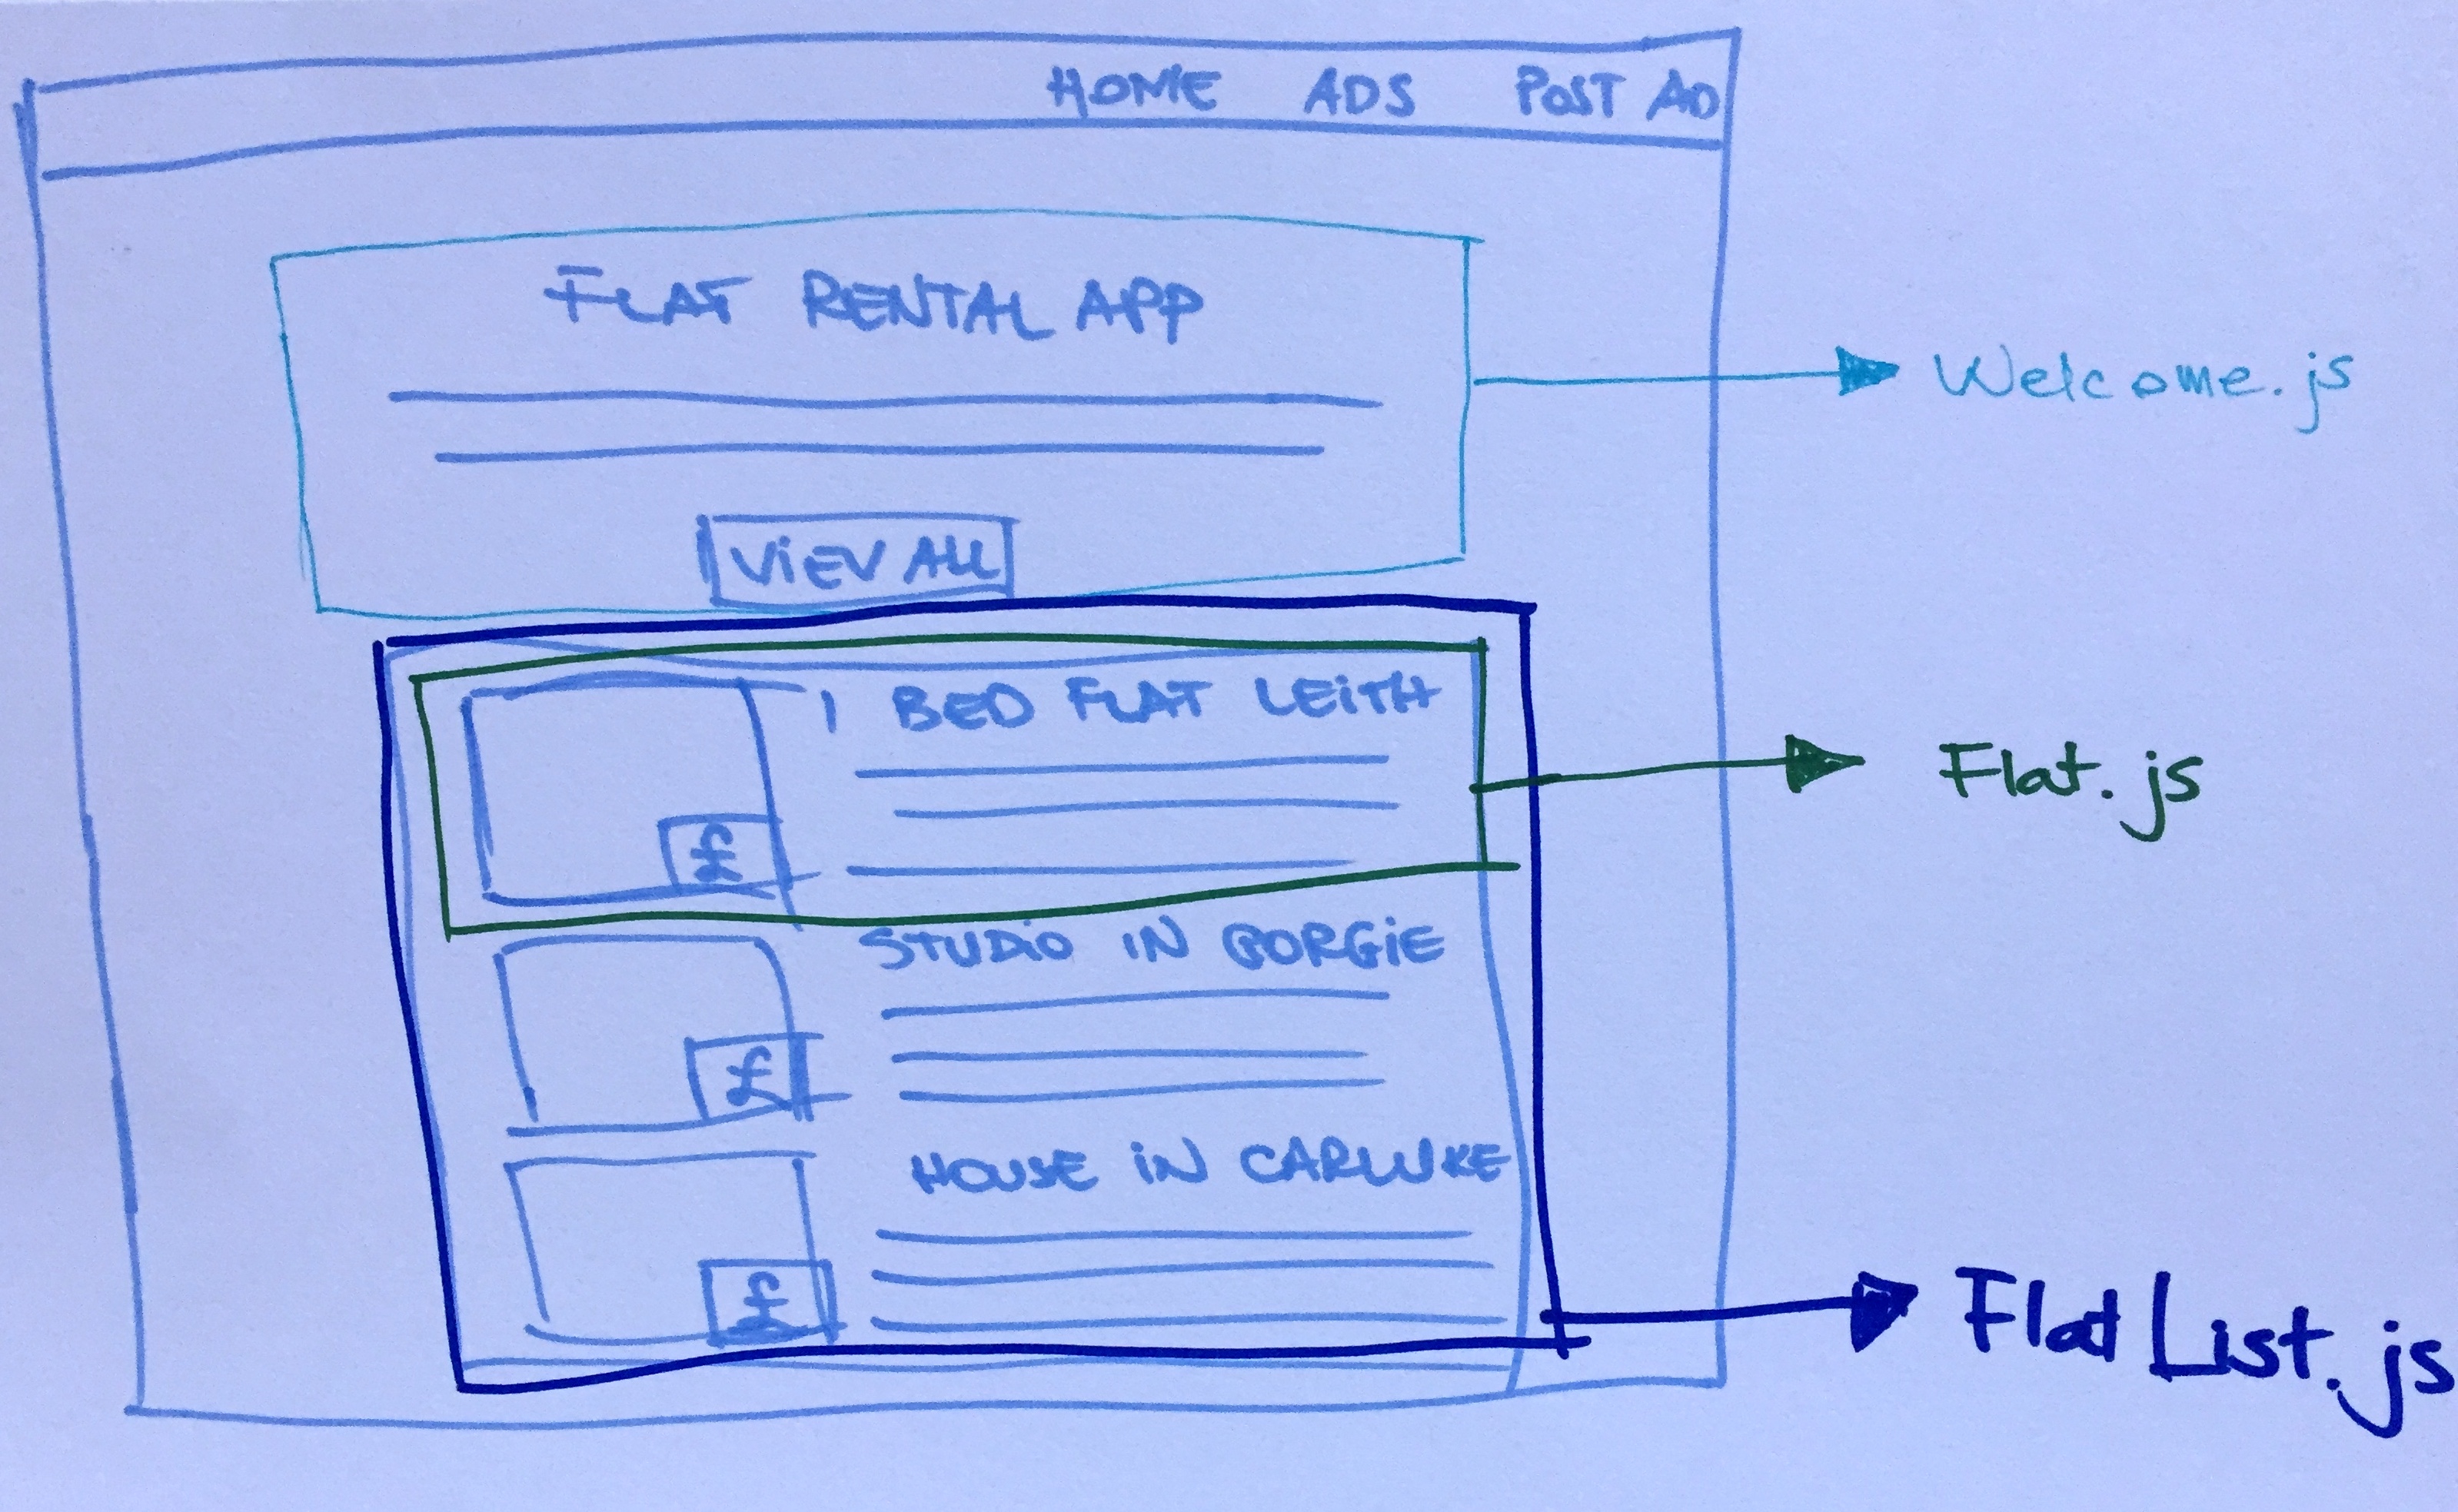 HOME ADS POST AD
FLAT RENTAL APP
Welcome.js
VIEV ALL
1 BED FLAT LEITH
Flat.js
£
STUDIO IN GORGIE
£
HOUSE IN CARLUKE
£
FlatList.js